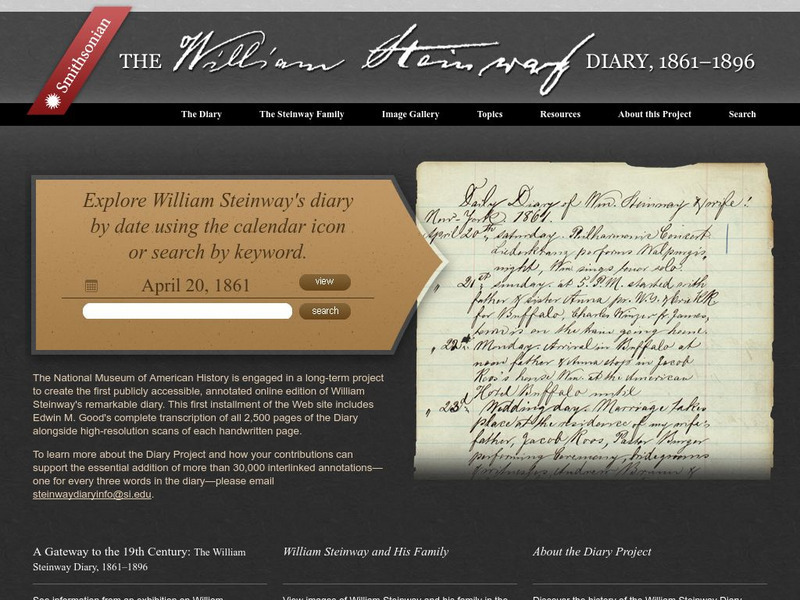 Smithsonian
THE William Steinway DIARY, 1861–1896
The Diary
The Steinway Family
Image Gallery
Topics
Resources
About this Project
Search
Explore William Steinway's diary
by date using the calendar icon
or search by keyword.
April 20, 1861
view
search
Daily Diary of Wm. Steinway & wife!
New-York 1861.
April 20th, Saturday. Philharmonic Concert
Liederkranz performs Walpurgis
night, Wm sings four solo.
" 21st Sunday. at 5. P.M. started with
father & sister Anna pr. N.Y. & Erie RR.
for Buffalo, Charles
is on the train going home.
" 22d Monday. Arrival in Buffalo at
noon father & Anna stops in Jacob
Roos's house Wm. at the American
Hotel Buffalo until
" 23d Wedding day. Marriage takes
place at the residence of my wife's
father, Jacob Roos, Pastor Burger
performing Ceremony, bridegrooms
The National Museum of American History is engaged in a long-term project
to create the first publicly accessible, annotated online edition of William
Steinway's remarkable diary. This first installment of the Web site includes
Edwin M. Good's complete transcription of all 2,500 pages of the Diary
alongside high-resolution scans of each handwritten page.
To learn more about the Diary Project and how your contributions can
support the essential addition of more than 30,000 interlinked annotations—
one for every three words in the diary—please email
steinwaydiaryinfo@si.edu.
A Gateway to the 19th Century: The William
Steinway Diary, 1861–1896
See information from an exhibition on William
William Steinway and His Family
View images of William Steinway and his family in the
About the Diary Project
Discover the history of the William Steinway Diary